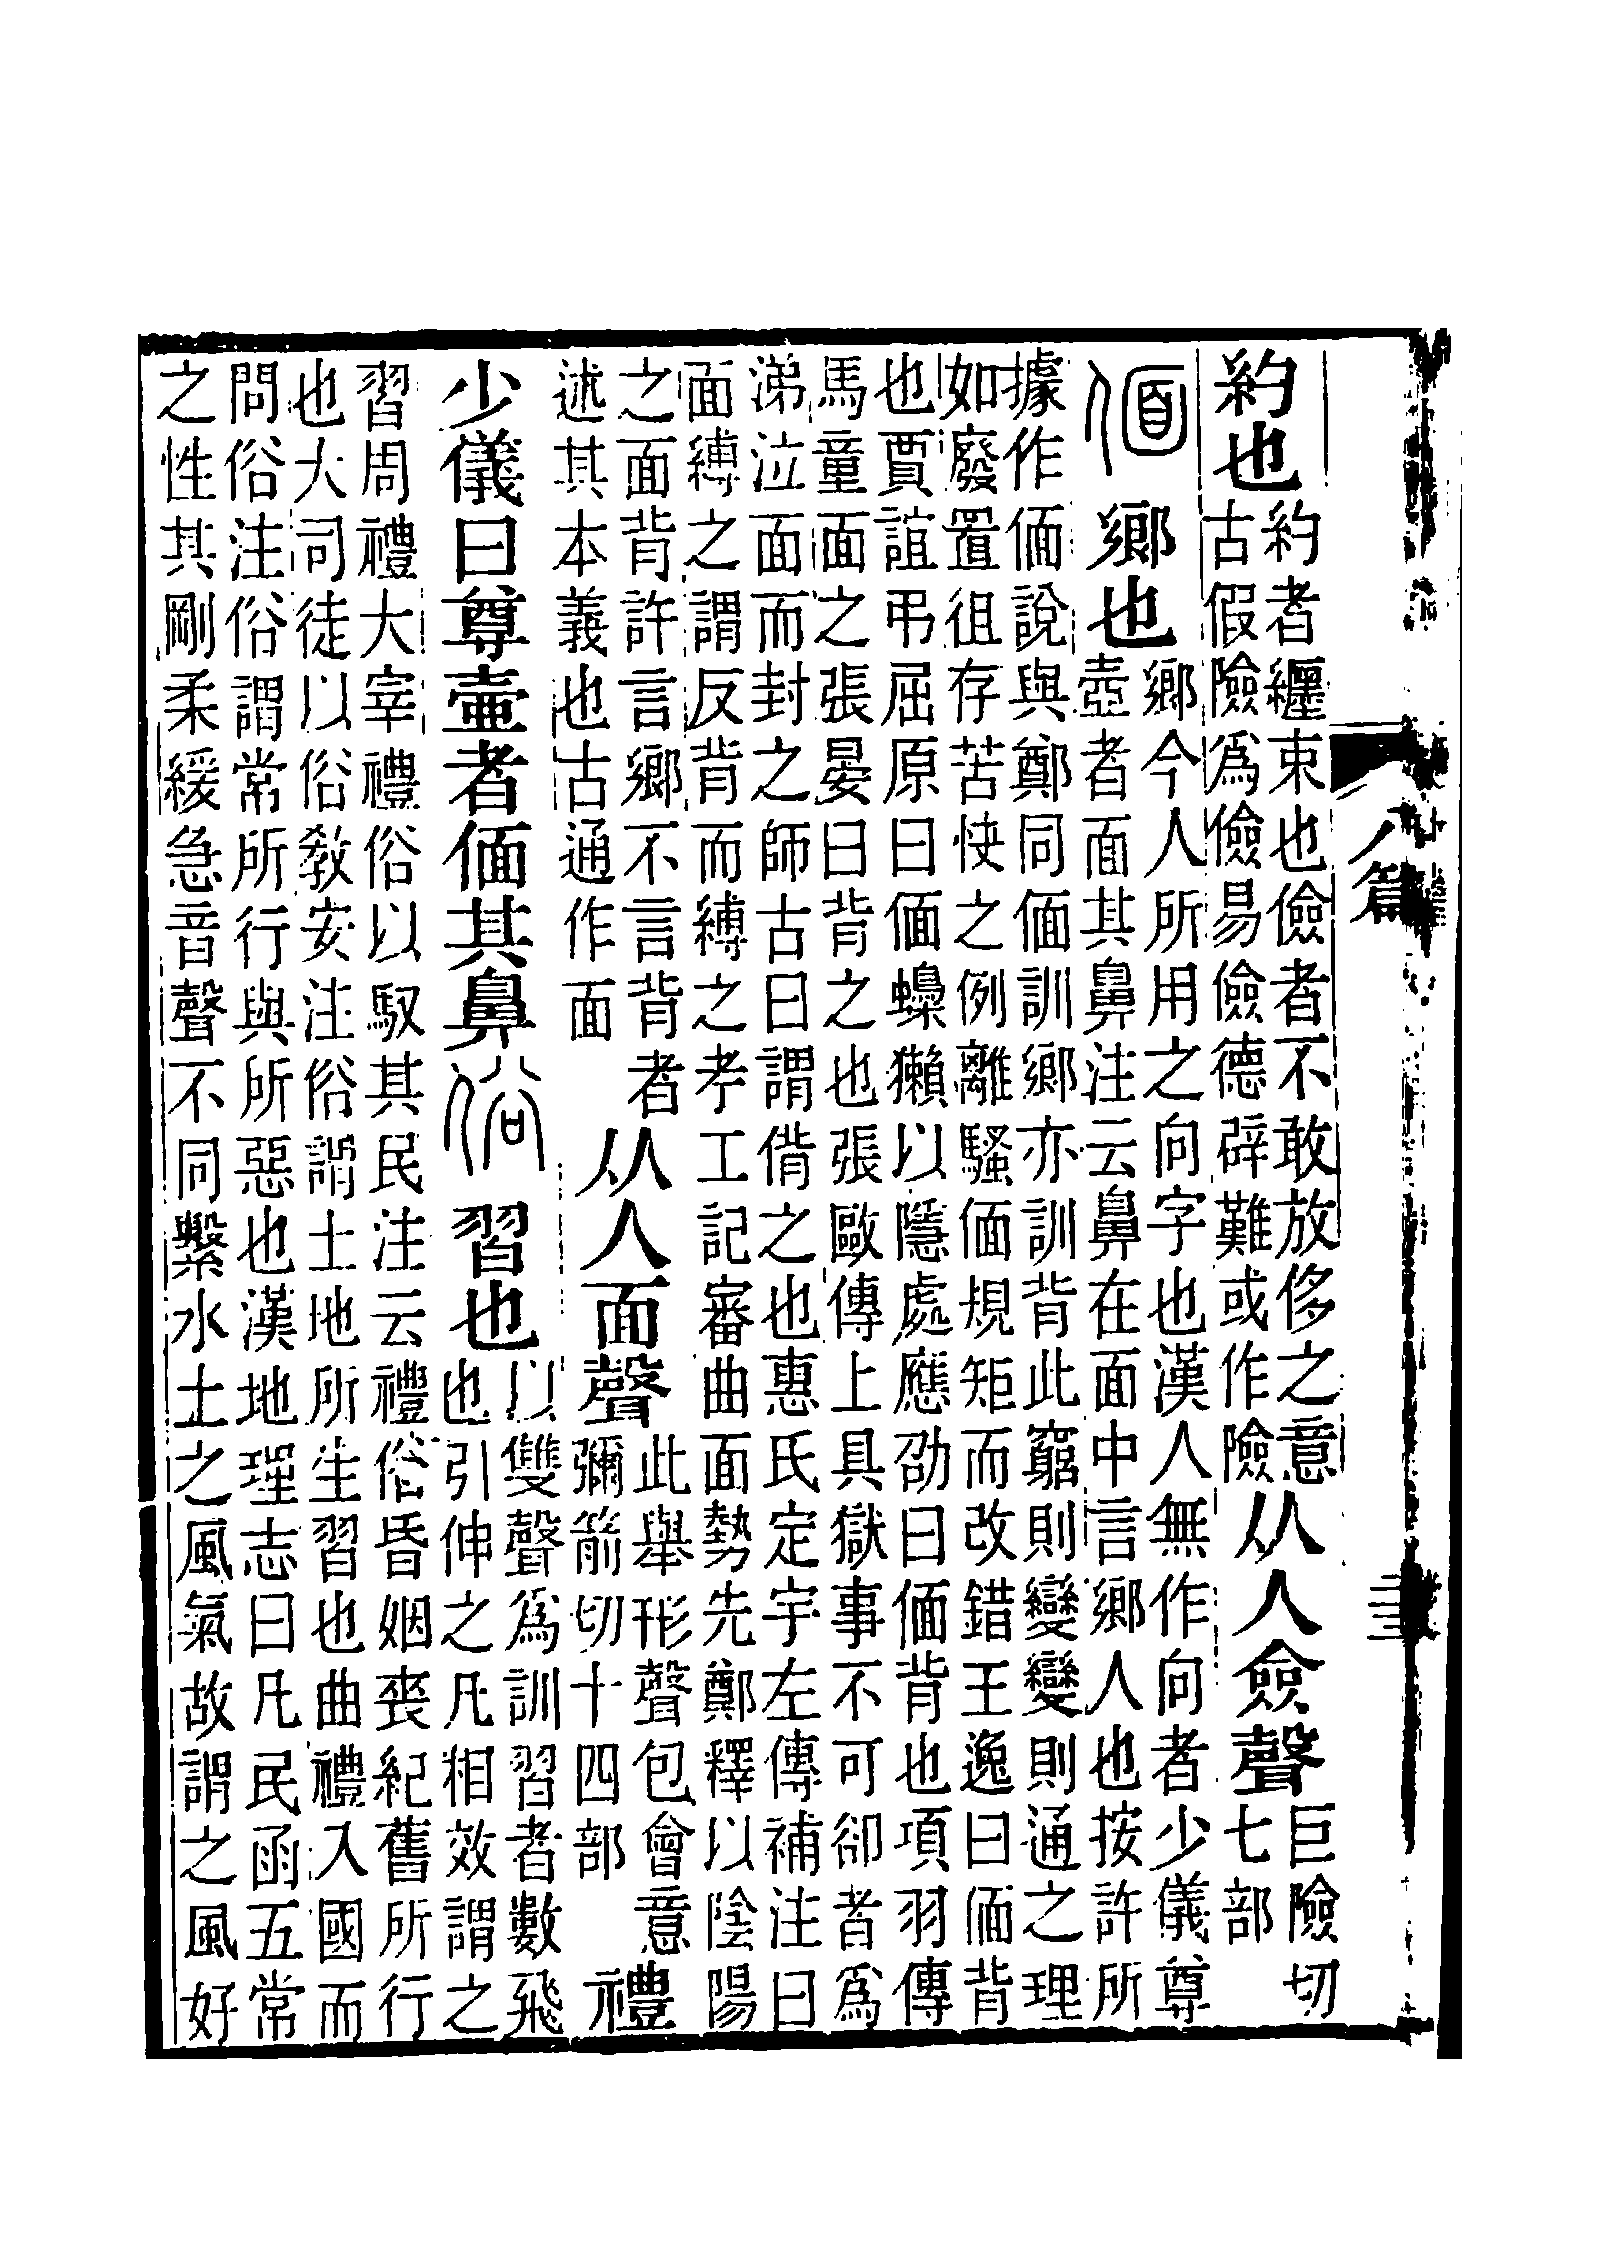 八篇
三
約也約者纏束也儉者不敢放侈之意古假險爲儉易儉德辟難或作險从人僉聲巨險切七部
偭鄉也鄉今人所用之向字也漢人無作向者少儀尊壺者面其鼻注云鼻在面中言鄉人也按許所
據作偭說與鄭同偭訓鄉亦訓背此窮則變變則通之理
如廢置徂存苦快之例離騷偭規矩而改錯王逸曰偭背
也賈誼弔屈原曰偭蟂獺以隱處應劭曰偭背也項羽傳
馬童面之張晏曰背之也張歐傳上具獄事不可卻者爲
涕泣面而封之師古曰謂偝之也惠氏定宇左傳補注曰
面縛之謂反背而縛之考工記審曲面勢先鄭釋以陰陽
之面背許言鄉不言背者述其本義也古通作面从人面聲此舉形聲包會意彌箭切十四部禮
少儀曰尊壷者偭其鼻俗習也以雙聲爲訓習者數飛也引伸之凡相效謂之
習周禮大宰禮俗以馭其民注云禮俗昏姻喪紀舊所行
也大司徒以俗教安注俗謂土地所生習也曲禮入國而
問俗注俗謂常所行與所惡也漢地理志曰凡民函五常
之性其剛柔緩急音聲不同繫水土之風氣故謂之風好